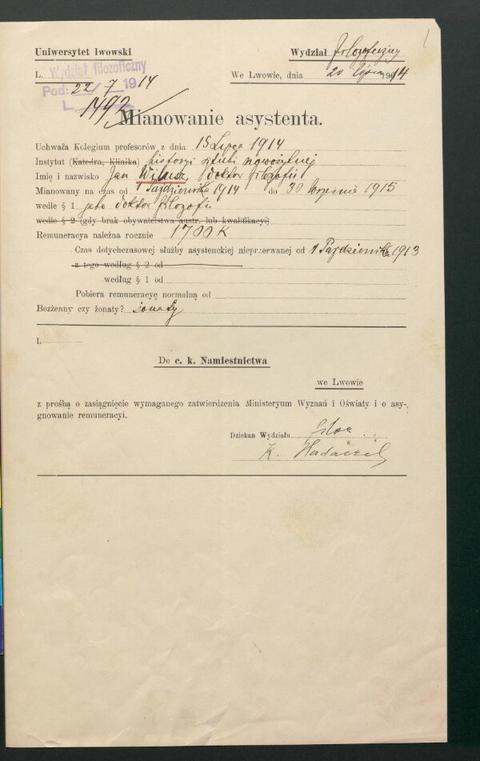 Uniwersytet lwowski
Wydział filozoficzny
L.
Wydział filozoficzny
Pod: 22/7 1914
L.
1492
We Lwowie, dnia 20 lipca 1914
Mianowanie asystenta.
Uchwała Kolegium profesorów z dnia 15 Lipca 1914
Instytut (Katedra, Klinika) historyi sztuki nowożytnej
Imię i nazwisko Jan doktor filozofii
Mianowany na czas od 1 Października 1914 do 30 września 1915
wedle § 1 jako doktor filozofii
wedle § 2 (gdy brak obywatelstwa austr. lub kwalifikacyi)
Remuneracya należna rocznie 1700 K
Czas dotychczasowej służby asystenckiej nieprzerwanej od 1 Października 1913
z tego według § 2 od
według § 1 od
Pobiera remuneracyę normalną od
Bezżenny czy żonaty? żonaty
L.
Do c. k. Namiestnictwa
we Lwowie
z prośbą o zasiągnięcie wymaganego zatwierdzenia Ministeryum Wyznań i Oświaty i o asy-
gnowanie remuneracyi.
Dziekan Wydziału
K. Hadaczek